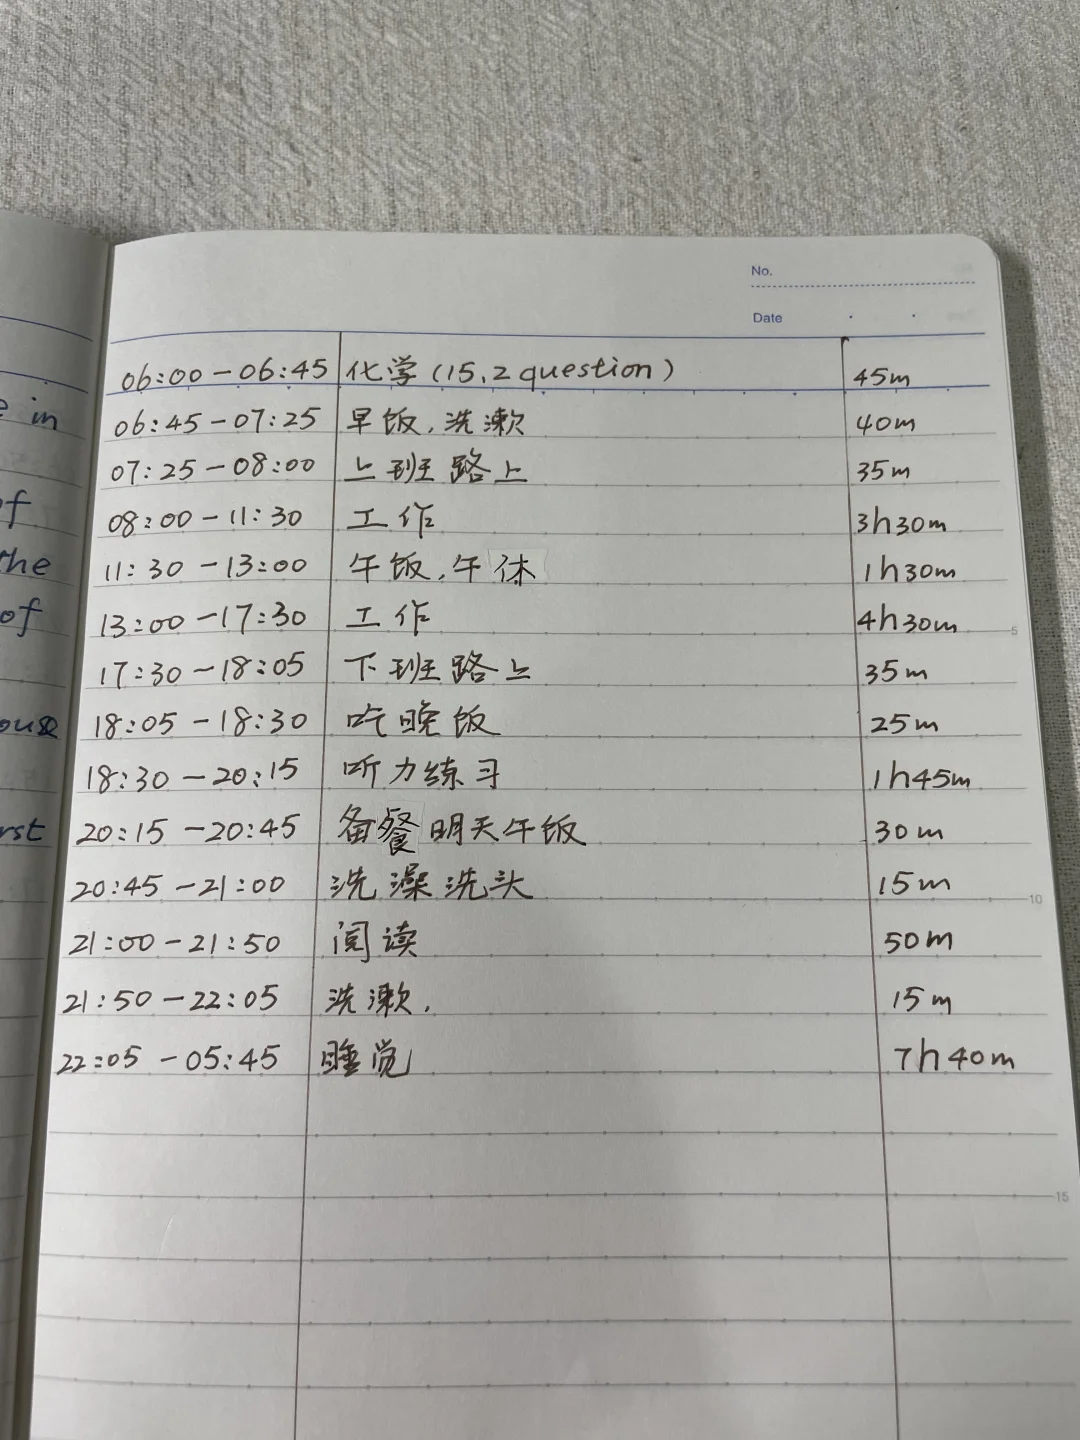 No.
Date
06:00-06:45 化学(15.2 question) 45m
06:45-07:25 早饭,洗漱 40m
07:25-08:00 上班路上 35m
08:00-11:30 工作 3h30m
11:30-13:00 午饭,午休 1h30m
13:00-17:30 工作 4h30m
5
17:30-18:05 下班路上 35m
18:05-18:30 吃晚饭 25m
18:30-20:15 听力练习 1h45m
20:15-20:45 备餐明天午饭 30m
20:45-21:00 洗澡洗头 15m
10
21:00-21:50 阅读 50m
21:50-22:05 洗漱. 15m
22:05-05:45 睡觉 7h40m
15
in
of
the
of
rst